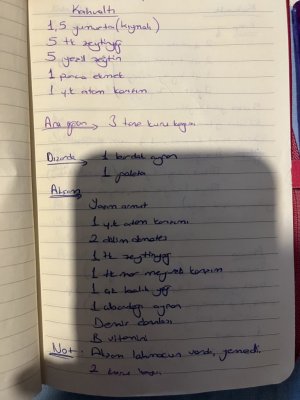 Kahvaltı
1,5 yumurta (kaynak)
5 tk zeytinyağ
5 yeşil zeytin
1 parça ekmek
1 yk atom karışım
Ara öğün → 3 tane kuru kayısı
1 bardak ayran
1 paket
Akşam
Yarım armut
1 yk atom karışımı
2 dilim domates
1 tk zeytinyağ
1 tk mor meyveli karışım
1 balık yağ
1 ayran
Demir damlası
B vitamini
Not: Akşam lahmacun vardı, yemedi.
2 kuru kayısı